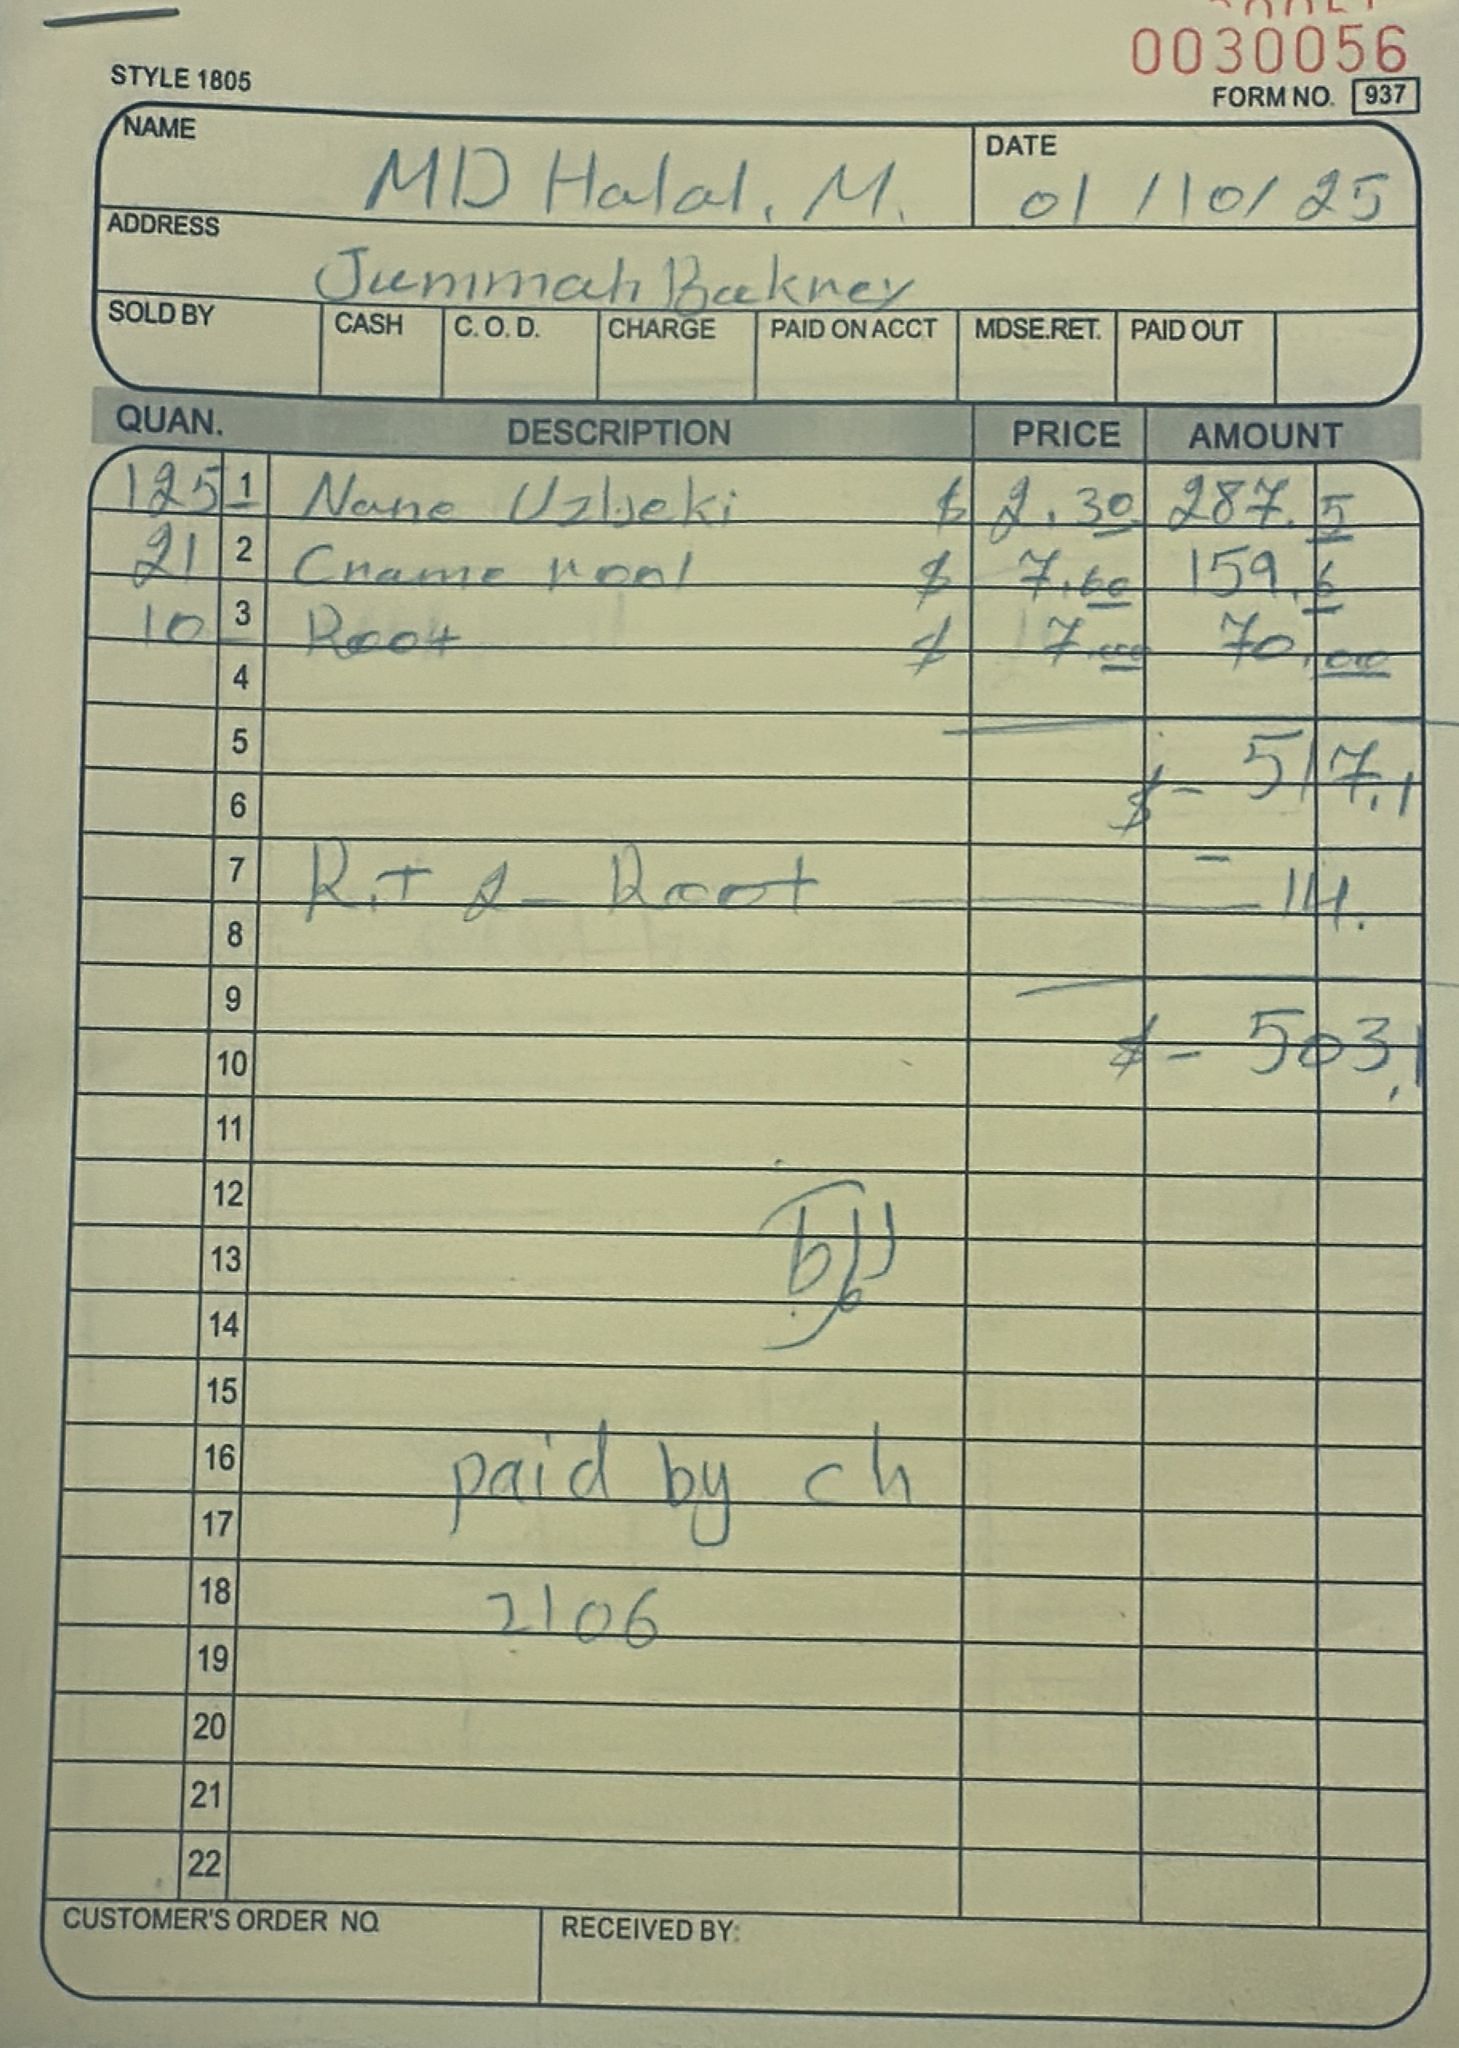 0030056
STYLE 1805
FORM NO. 937
NAME MD Halal. M. DATE 01/10/25
ADDRESS Jummah Bakrey
SOLD BY CASH C.O.D. CHARGE PAID ON ACCT MDSE.RET. PAID OUT
QUAN. DESCRIPTION PRICE AMOUNT
125 1 Nane Uzbeki $ 2.30 287.5
21 2 Crame rool $ 7.60 159.6
10 3 Root $ 7.00 70.00
4
5 $- 517.1
6
7 R.T 2- Root - 14.
8
9
10 $- 503.1
11
12
13
14
15
16 paid by ch
17
18 2106
19
20
21
22
CUSTOMER'S ORDER NO. RECEIVED BY: